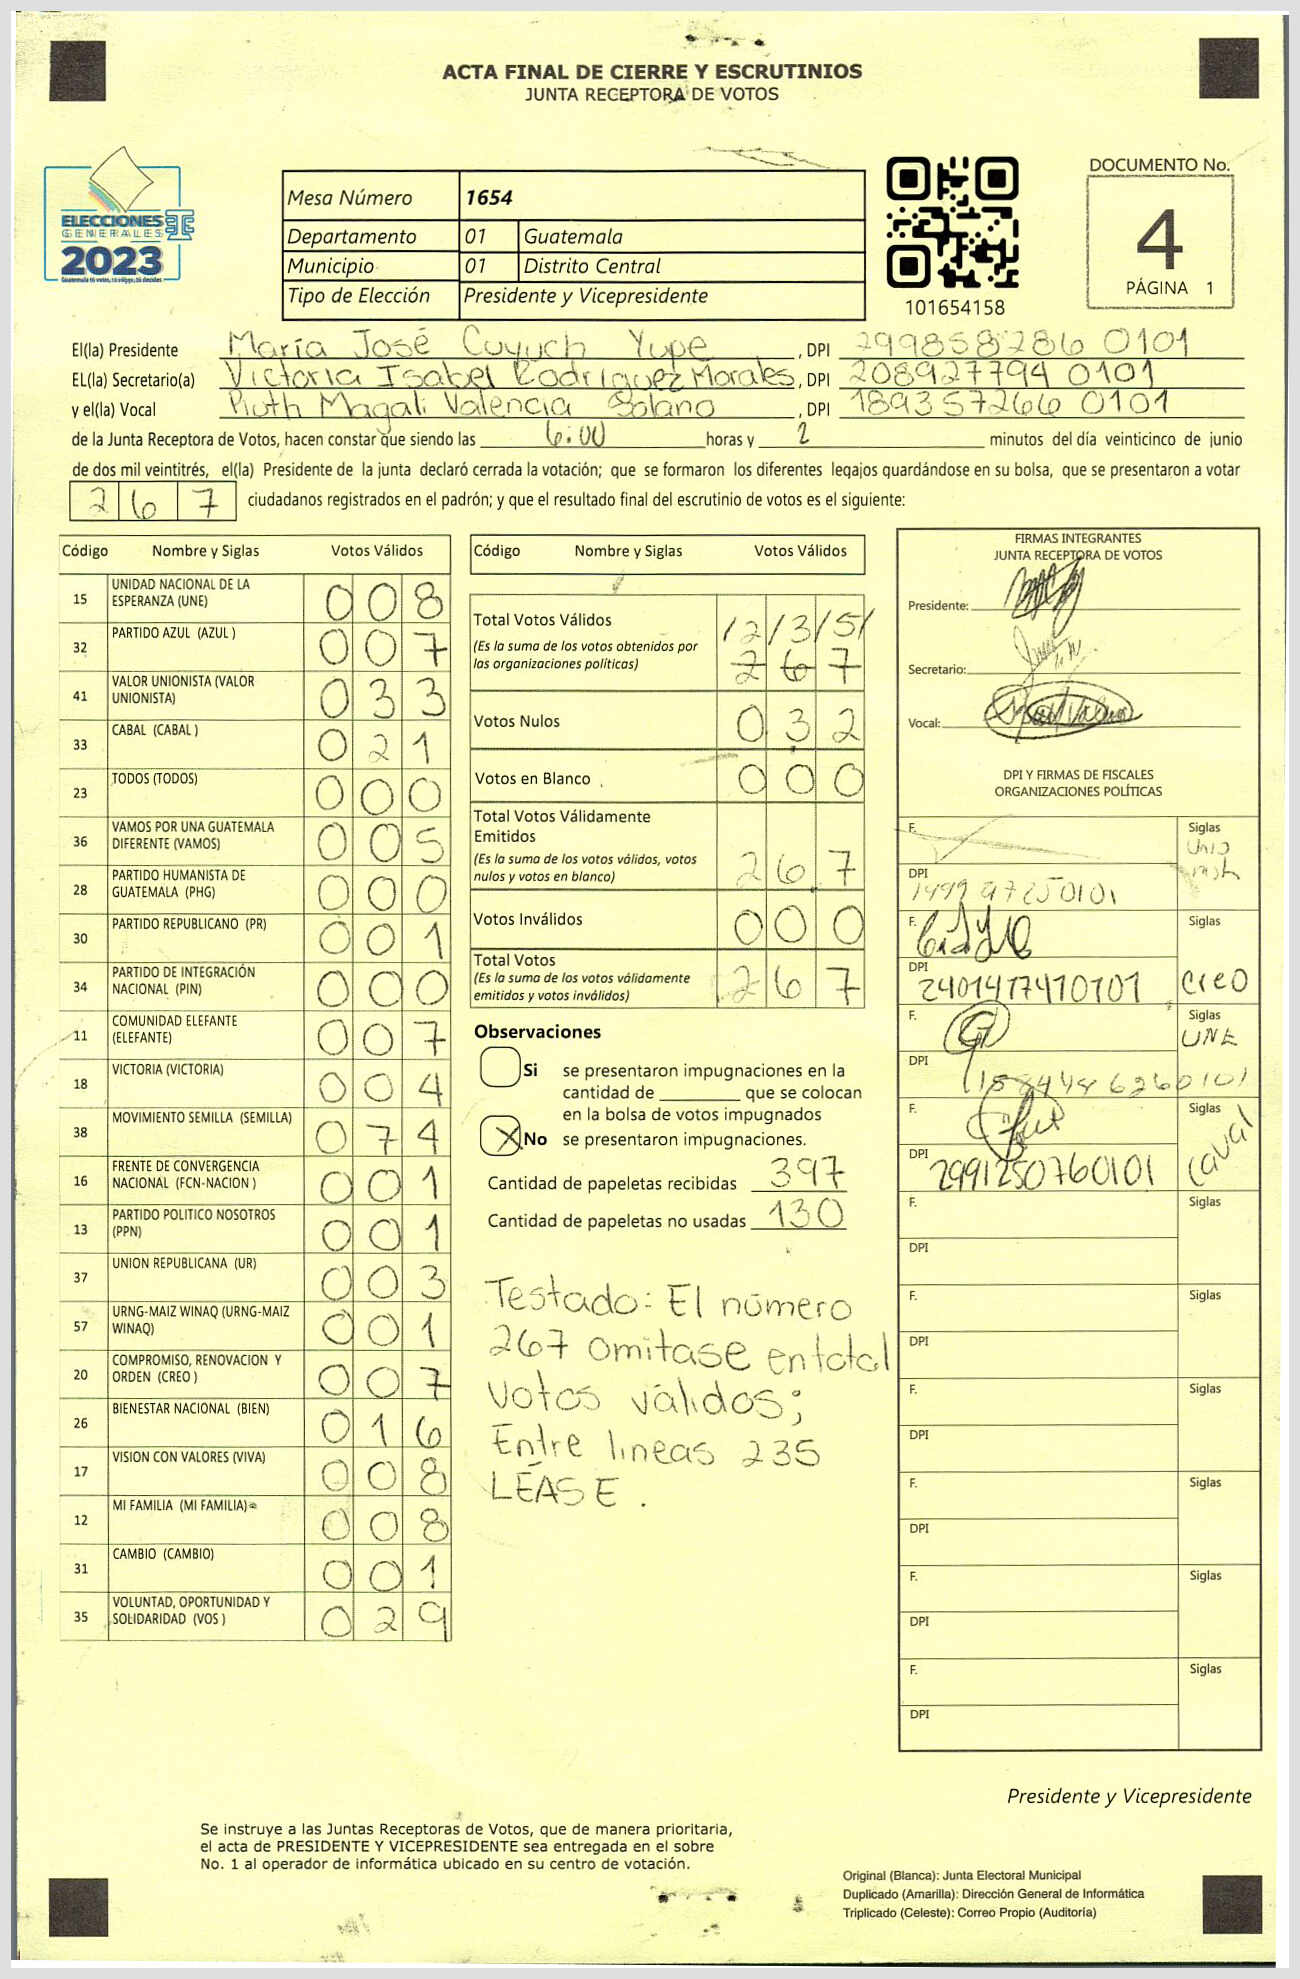 ACTA FINAL DE CIERRE Y ESCRUTINIOS
JUNTA RECEPTORA DE VOTOS
ELECCIONES
GENERALES
2023
Mesa Número 1654
Departamento 01 Guatemala
Municipio 01 Distrito Central
Tipo de Elección Presidente y Vicepresidente
101654158
DOCUMENTO No.
4
PÁGINA 1
El(la) Presidente María José Cuyuch Yupe, DPI 299858286 0101
EL(la) Secretario(a) Victoria Isabel Rodríguez Morales, DPI 208927794 0101
y el(la) Vocal Ruth Magali Valencia Solano, DPI 189357266 0101
de la Junta Receptora de Votos, hacen constar que siendo las 6:00 horas y 2 minutos del día veinticinco de junio
de dos mil veintitrés, el(la) Presidente de la junta declaró cerrada la votación; que se formaron los diferentes legajos guardándose en su bolsa, que se presentaron a votar
267 ciudadanos registrados en el padrón; y que el resultado final del escrutinio de votos es el siguiente:
Código Nombre y Siglas Votos Válidos
15 UNIDAD NACIONAL DE LA ESPERANZA (UNE) 008
32 PARTIDO AZUL (AZUL ) 007
41 VALOR UNIONISTA (VALOR UNIONISTA) 033
33 CABAL (CABAL ) 021
23 TODOS (TODOS) 000
36 VAMOS POR UNA GUATEMALA DIFERENTE (VAMOS) 005
28 PARTIDO HUMANISTA DE GUATEMALA (PHG) 000
30 PARTIDO REPUBLICANO (PR) 001
34 PARTIDO DE INTEGRACIÓN NACIONAL (PIN) 000
11 COMUNIDAD ELEFANTE (ELEFANTE) 007
18 VICTORIA (VICTORIA) 004
38 MOVIMIENTO SEMILLA (SEMILLA) 074
16 FRENTE DE CONVERGENCIA NACIONAL (FCN-NACION ) 001
13 PARTIDO POLITICO NOSOTROS (PPN) 001
37 UNION REPUBLICANA (UR) 003
57 URNG-MAIZ WINAQ (URNG-MAIZ WINAQ) 001
20 COMPROMISO, RENOVACION Y ORDEN (CREO ) 007
26 BIENESTAR NACIONAL (BIEN) 016
17 VISION CON VALORES (VIVA) 008
12 MI FAMILIA (MI FAMILIA) 008
31 CAMBIO (CAMBIO) 001
35 VOLUNTAD, OPORTUNIDAD Y SOLIDARIDAD (VOS ) 029
Código Nombre y Siglas Votos Válidos
Total Votos Válidos /2/3/5/
(Es la suma de los votos obtenidos por
las organizaciones políticas) 267
Votos Nulos 032
Votos en Blanco 000
Total Votos Válidamente
Emitidos
(Es la suma de los votos válidos, votos
nulos y votos en blanco) 267
Votos Inválidos 000
Total Votos
(Es la suma de los votos válidamente
emitidos y votos inválidos) 267
Observaciones
Si se presentaron impugnaciones en la
cantidad de ________ que se colocan
en la bolsa de votos impugnados
X No se presentaron impugnaciones.
Cantidad de papeletas recibidas 397
Cantidad de papeletas no usadas 130
Testado: El número
267 omitase en total
votos válidos;
Entre lineas 235
LÉASE.
FIRMAS INTEGRANTES
JUNTA RECEPTORA DE VOTOS
Presidente:
Secretario:
Vocal:
DPI Y FIRMAS DE FISCALES
ORGANIZACIONES POLÍTICAS
F. Siglas
DPI
F. Siglas
DPI 2401417410101 Creo
F. Siglas
UNE
DPI 1584446260101
F. Siglas
DPI 2991250760101 Caval
F. Siglas
DPI
F. Siglas
DPI
F. Siglas
DPI
F. Siglas
DPI
F. Siglas
DPI
F. Siglas
DPI
Presidente y Vicepresidente
Se instruye a las Juntas Receptoras de Votos, que de manera prioritaria,
el acta de PRESIDENTE Y VICEPRESIDENTE sea entregada en el sobre
No. 1 al operador de informática ubicado en su centro de votación.
Original (Blanca): Junta Electoral Municipal
Duplicado (Amarilla): Dirección General de Informática
Triplicado (Celeste): Correo Propio (Auditoría)